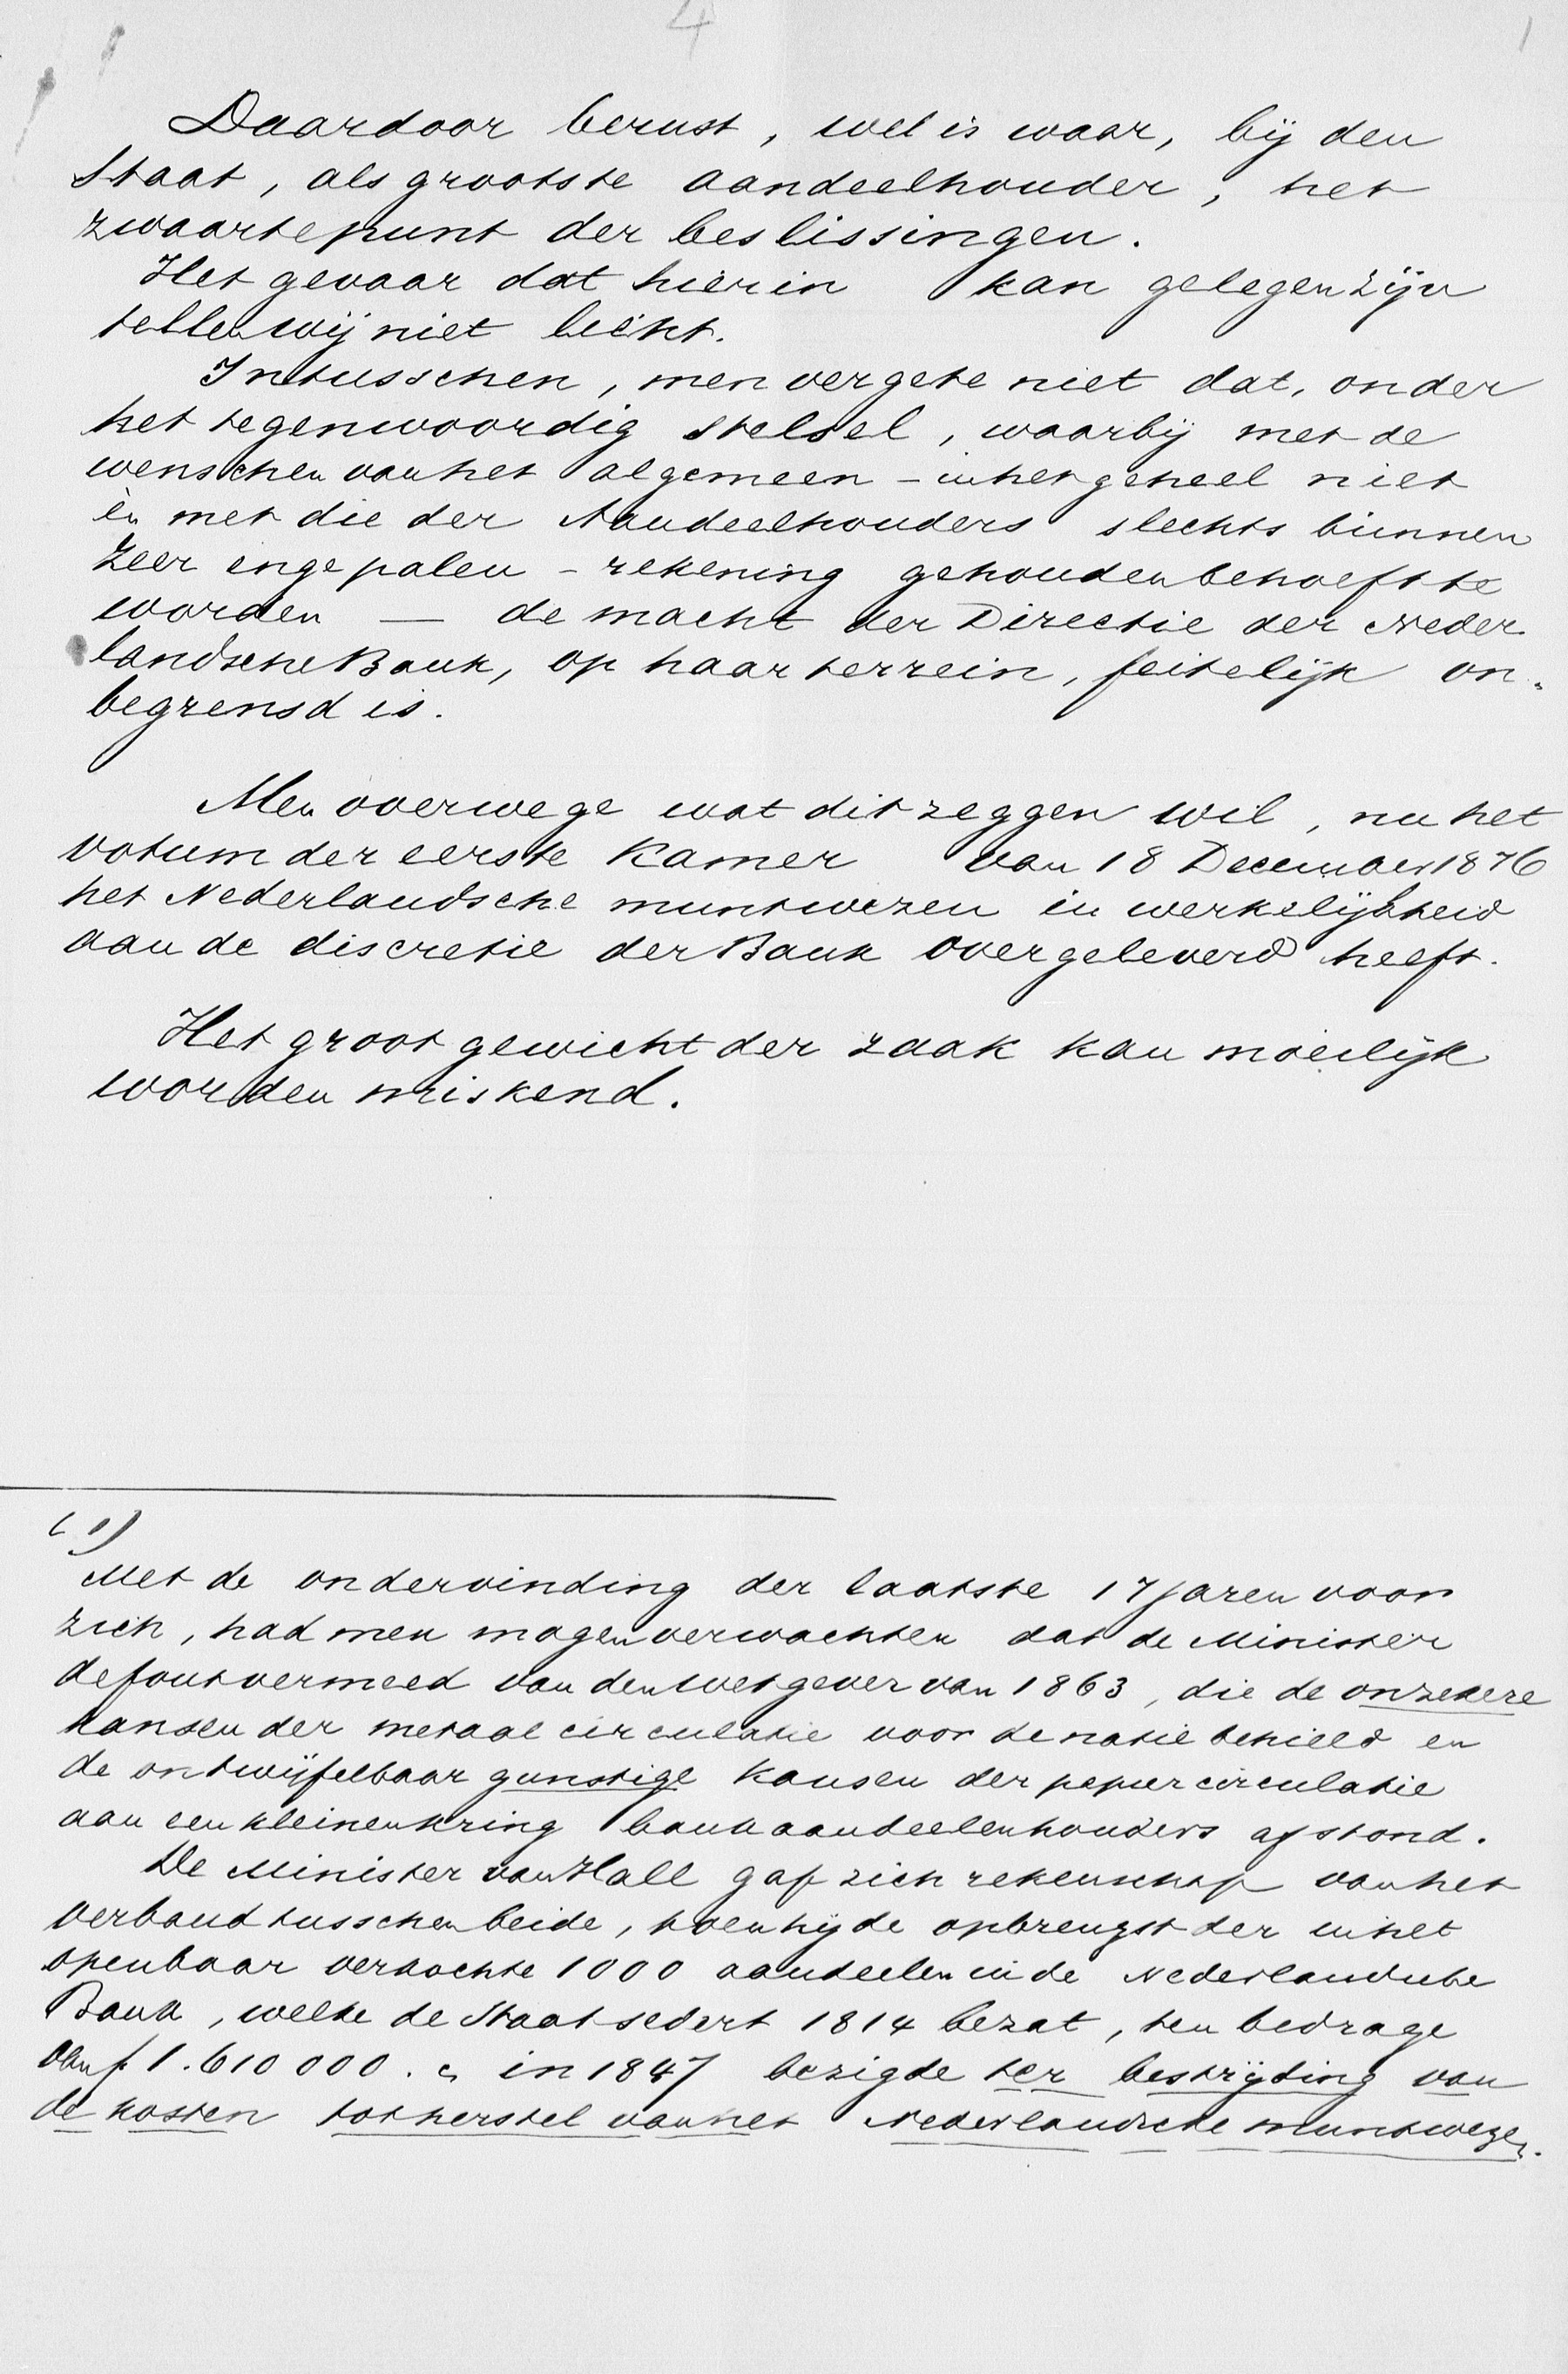 4
Daardoor berust, wel is waar, bij den
Staat, als grootste aandeelhouder, het
zwaartepunt der beslissingen.
Het gevaar dat hierin kan gelegen zijn
tellen wij niet licht.
Intusschen, men vergete niet dat, onder
het tegenwoordig stelsel, waarbij met de
wenschen van het algemeen - in het geheel niet
èn met die der Aandeelhouders slechts binnen
zeer enge palen - rekening gehouden behoeft te
worden — de macht der Directie der Neder-
landsche Bank, op haar terrein, feitelijk on-
begrensd is.
Men overwege wat dit zeggen wil, nu het
votum der eerste Kamer van 18 December 1876
het Nederlandsche muntwezen in werkelijkheid
aan de discretie der Bank overgeleverd heeft.
Het groot gewicht der zaak kan moeilijk
worden miskend.
(1)
Met de ondervinding der laatste 17 jaren voor
zich, had men mogen verwachten dat de Minister
de fout vermeed van den wetgever van 1863, die de onzekere
kansen der metaal circulatie voor de natie behield en
de ontwijfelbaar gunstige kansen der papier circulatie
aan een kleinen kring bankaandeelenhouders afstond.
De Minister van Hall gaf zich rekenschap van het
verband tusschen beide, toen hij de opbrengst der in het
openbaar verkochte 1000 aandeelen in de Nederlandsche
Bank, welke de Staat sedert 1814 bezat, ten bedrage
van f 1.610 000. in 1847 bezigde ter bestrijding van
de kosten tot herstel van het Nederlandsche muntwezen.